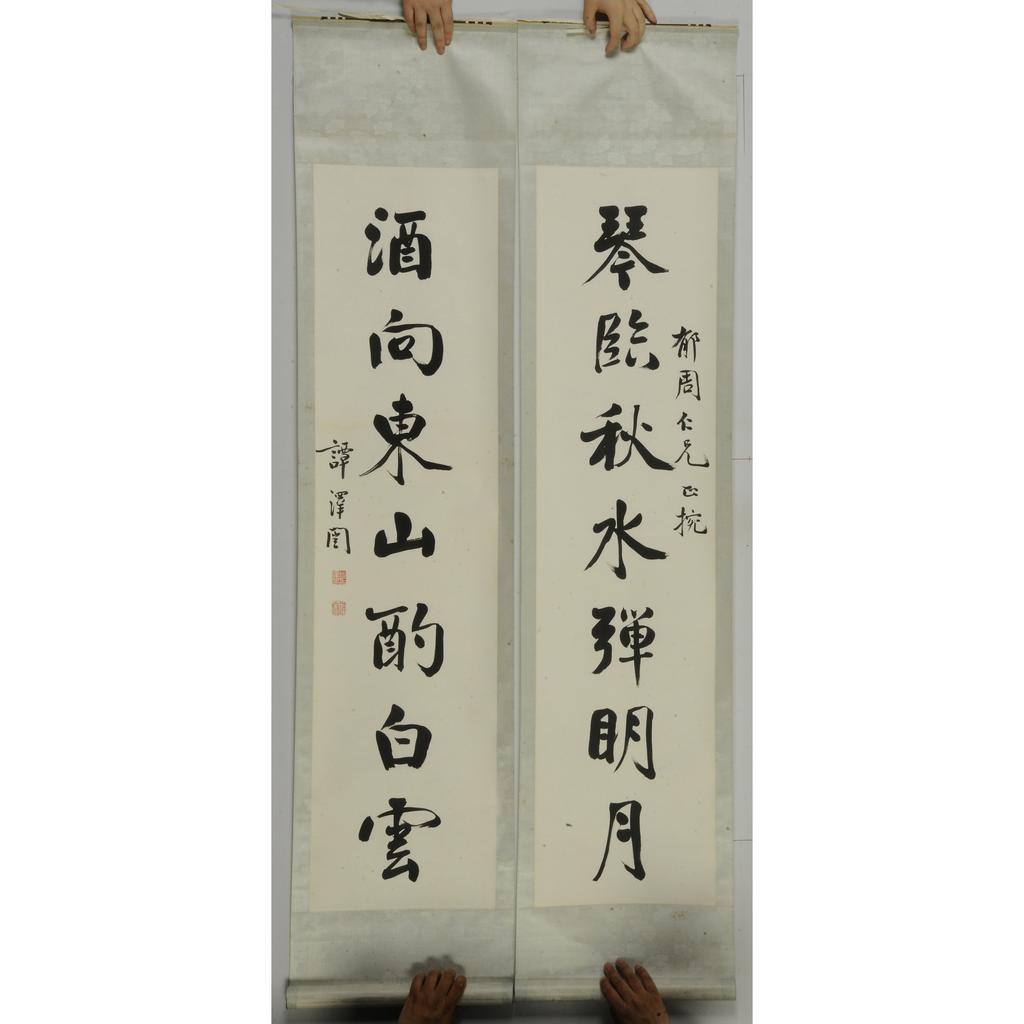 郁周仁兄正挽
琴臨秋水彈明月
酒向東山酌白雲
譚澤闓